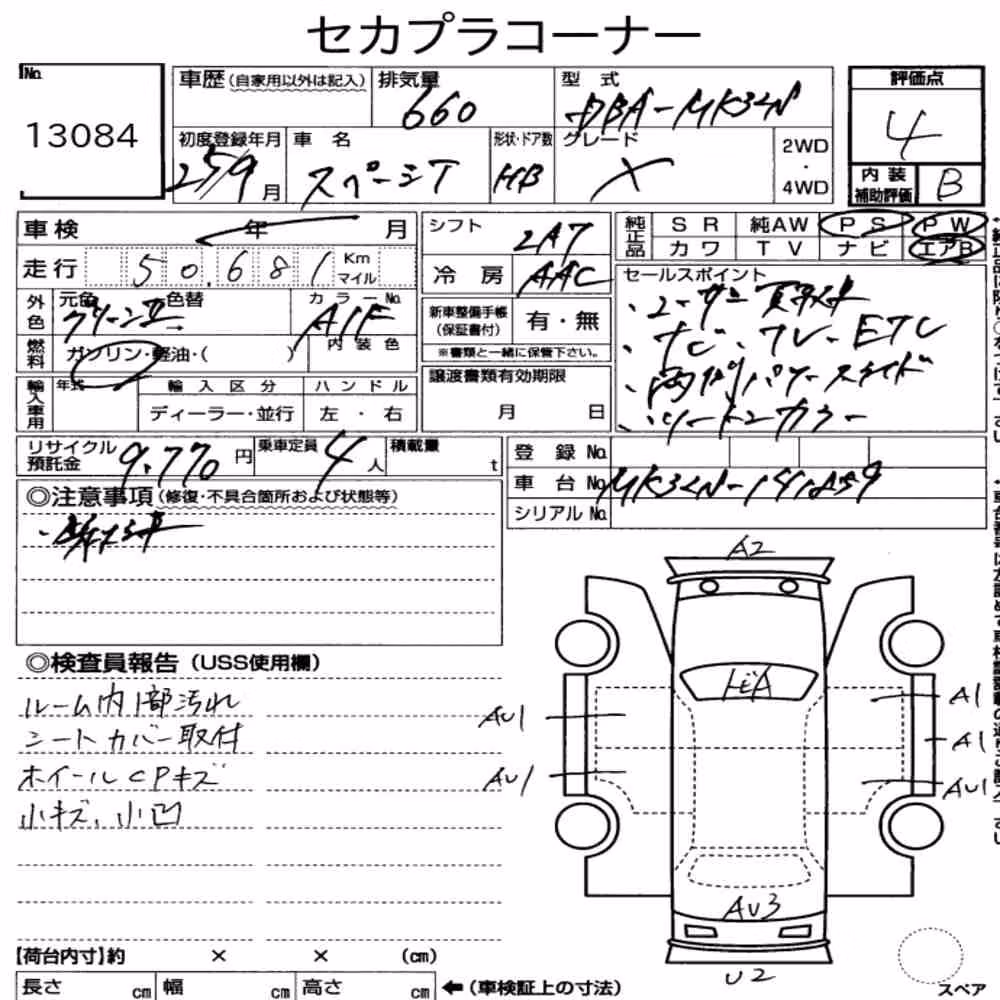 セカプラコーナー
No.
13084
車歴(自家用以外は記入) 排気量 660 型式 DBA-MK32N
評価点 4
内装補助評価 B
初度登録年月 25/9月 車名 スペーシア 形状・ドア数 HB グレード X 2WD・4WD
車検 年 月
シフト 2AT
純正品 SR 純AW PS PW
カワ TV ナビ エアB
走行 50,681 Km マイル
冷房 AAC
セールスポイント
・ユーザー買取車
・ナビ・TV・ETC
・両側パワースライド
・ツートンカラー
外色 元色 色替 カラーNo. A1F
新車整備手帳(保証書付) 有・無
※書類と一緒に保管下さい。
燃料 ガソリン・軽油・( ) 内装色
譲渡書類有効期限
月 日
輸入車用 年式 輸入区分 ハンドル
ディーラー・並行 左・右
リサイクル預託金 9,770円 乗車定員 4人 積載量 t
登録No.
車台No. MK32N-
シリアルNo.
◎注意事項(修復・不具合箇所および状態等)
◎検査員報告(USS使用欄)
ルーム内1部汚れ
シートカバー取付
ホイールCPキズ
小キズ、小凹
A2
AU1
AU1
A1
A1
AU1
AU3
U2
スペア
【荷台内寸】約 × × (cm)
長さ cm 幅 cm 高さ cm ←(車検証上の寸法)